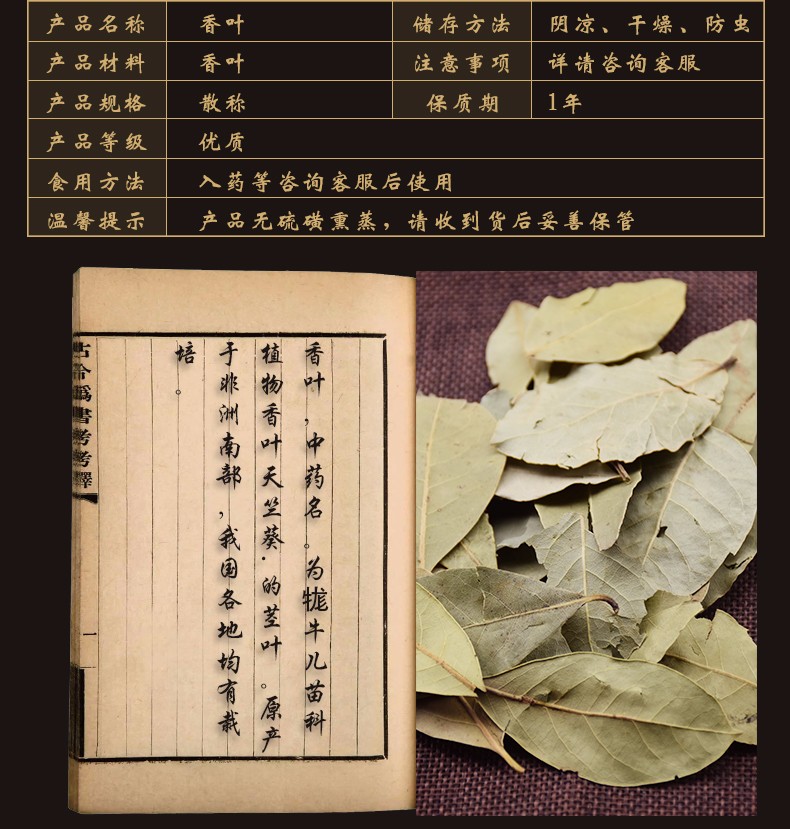 产品名称 香叶 储存方法 阴凉、干燥、防虫
产品材料 香叶 注意事项 详请咨询客服
产品规格 散称 保质期 1年
产品等级 优质
食用方法 入药等咨询客服后使用
温馨提示 产品无硫磺熏蒸，请收到货后妥善保管
香叶，中药名。为牻牛儿苗科
植物香叶天竺葵.的茎叶。原产
于非洲南部，我国各地均有栽
培。